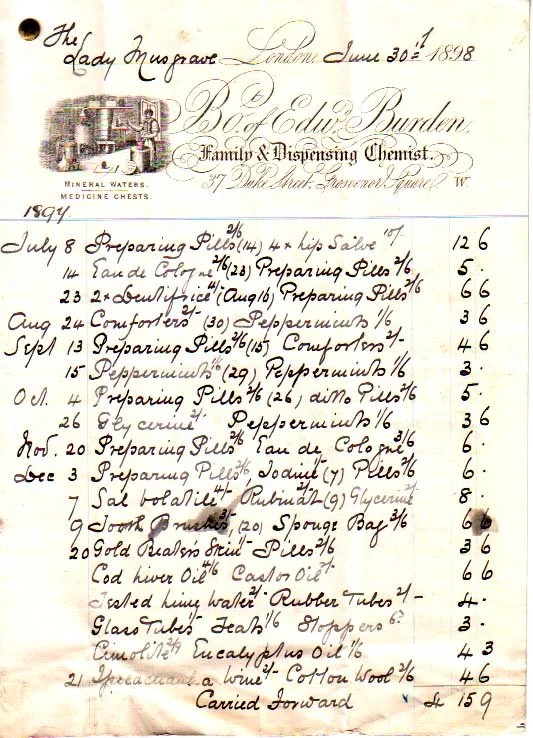 The
Lady Musgrave London, June 30th 1898
Bot of Edwd Burden,
Family & Dispensing Chemist.
37 Duke Street, Grosvenor Square, W.
MINERAL WATERS.
MEDICINE CHESTS
1897.
July 8 Preparing Pills 2/6 (14) 4 x Lip Salve 10/- 12 6
14 Eau de Cologne 2/6 (23) Preparing Pills 2/6 5 ·
23 2 x Dentifrice 4/- (Aug 16) Preparing Pills 2/6 6 6
Aug 24 Comforters 2/- (30) Peppermints 1/6 3 6
Sept 13 Preparing Pills 2/6 (15) Comforters 2/- 4 6
15 Peppermints 1/6 (29) Peppermints 1/6 3 ·
Oct. 4 Preparing Pills 2/6 (26) ditto Pills 2/6 5 ·
26 Glycerine 2/- Peppermints 1/6 3 6
Nov. 20 Preparing Pills 2/6 Eau de Cologne 3/6 6 ·
Dec 3 Preparing Pills 2/6, Iodine 1/- (7) Pills 2/6 6 ·
7 Sal Volatile 4/- Rubinat 2/- (9) Glycerine 2/- 8 ·
9 Tooth Brushes 3/-, (20) Sponge Bag 3/6 6 6
20 Gold Beaters Skin 1/- Pills 2/6 3 6
Cod Liver Oil 4/6 Castor Oil 2/- 6 6
Tested Lime Water 2/- Rubber Tubes 2/- 4 ·
Glass Tubes 1/- Teats 1/6 Stoppers 6d 3 ·
Cimolite 2/9 Eucalyptus Oil 1/6 4 3
21 Ipecacuanha Wine 2/- Cotton Wool 2/6 4 6
Carried Forward 4 15 9